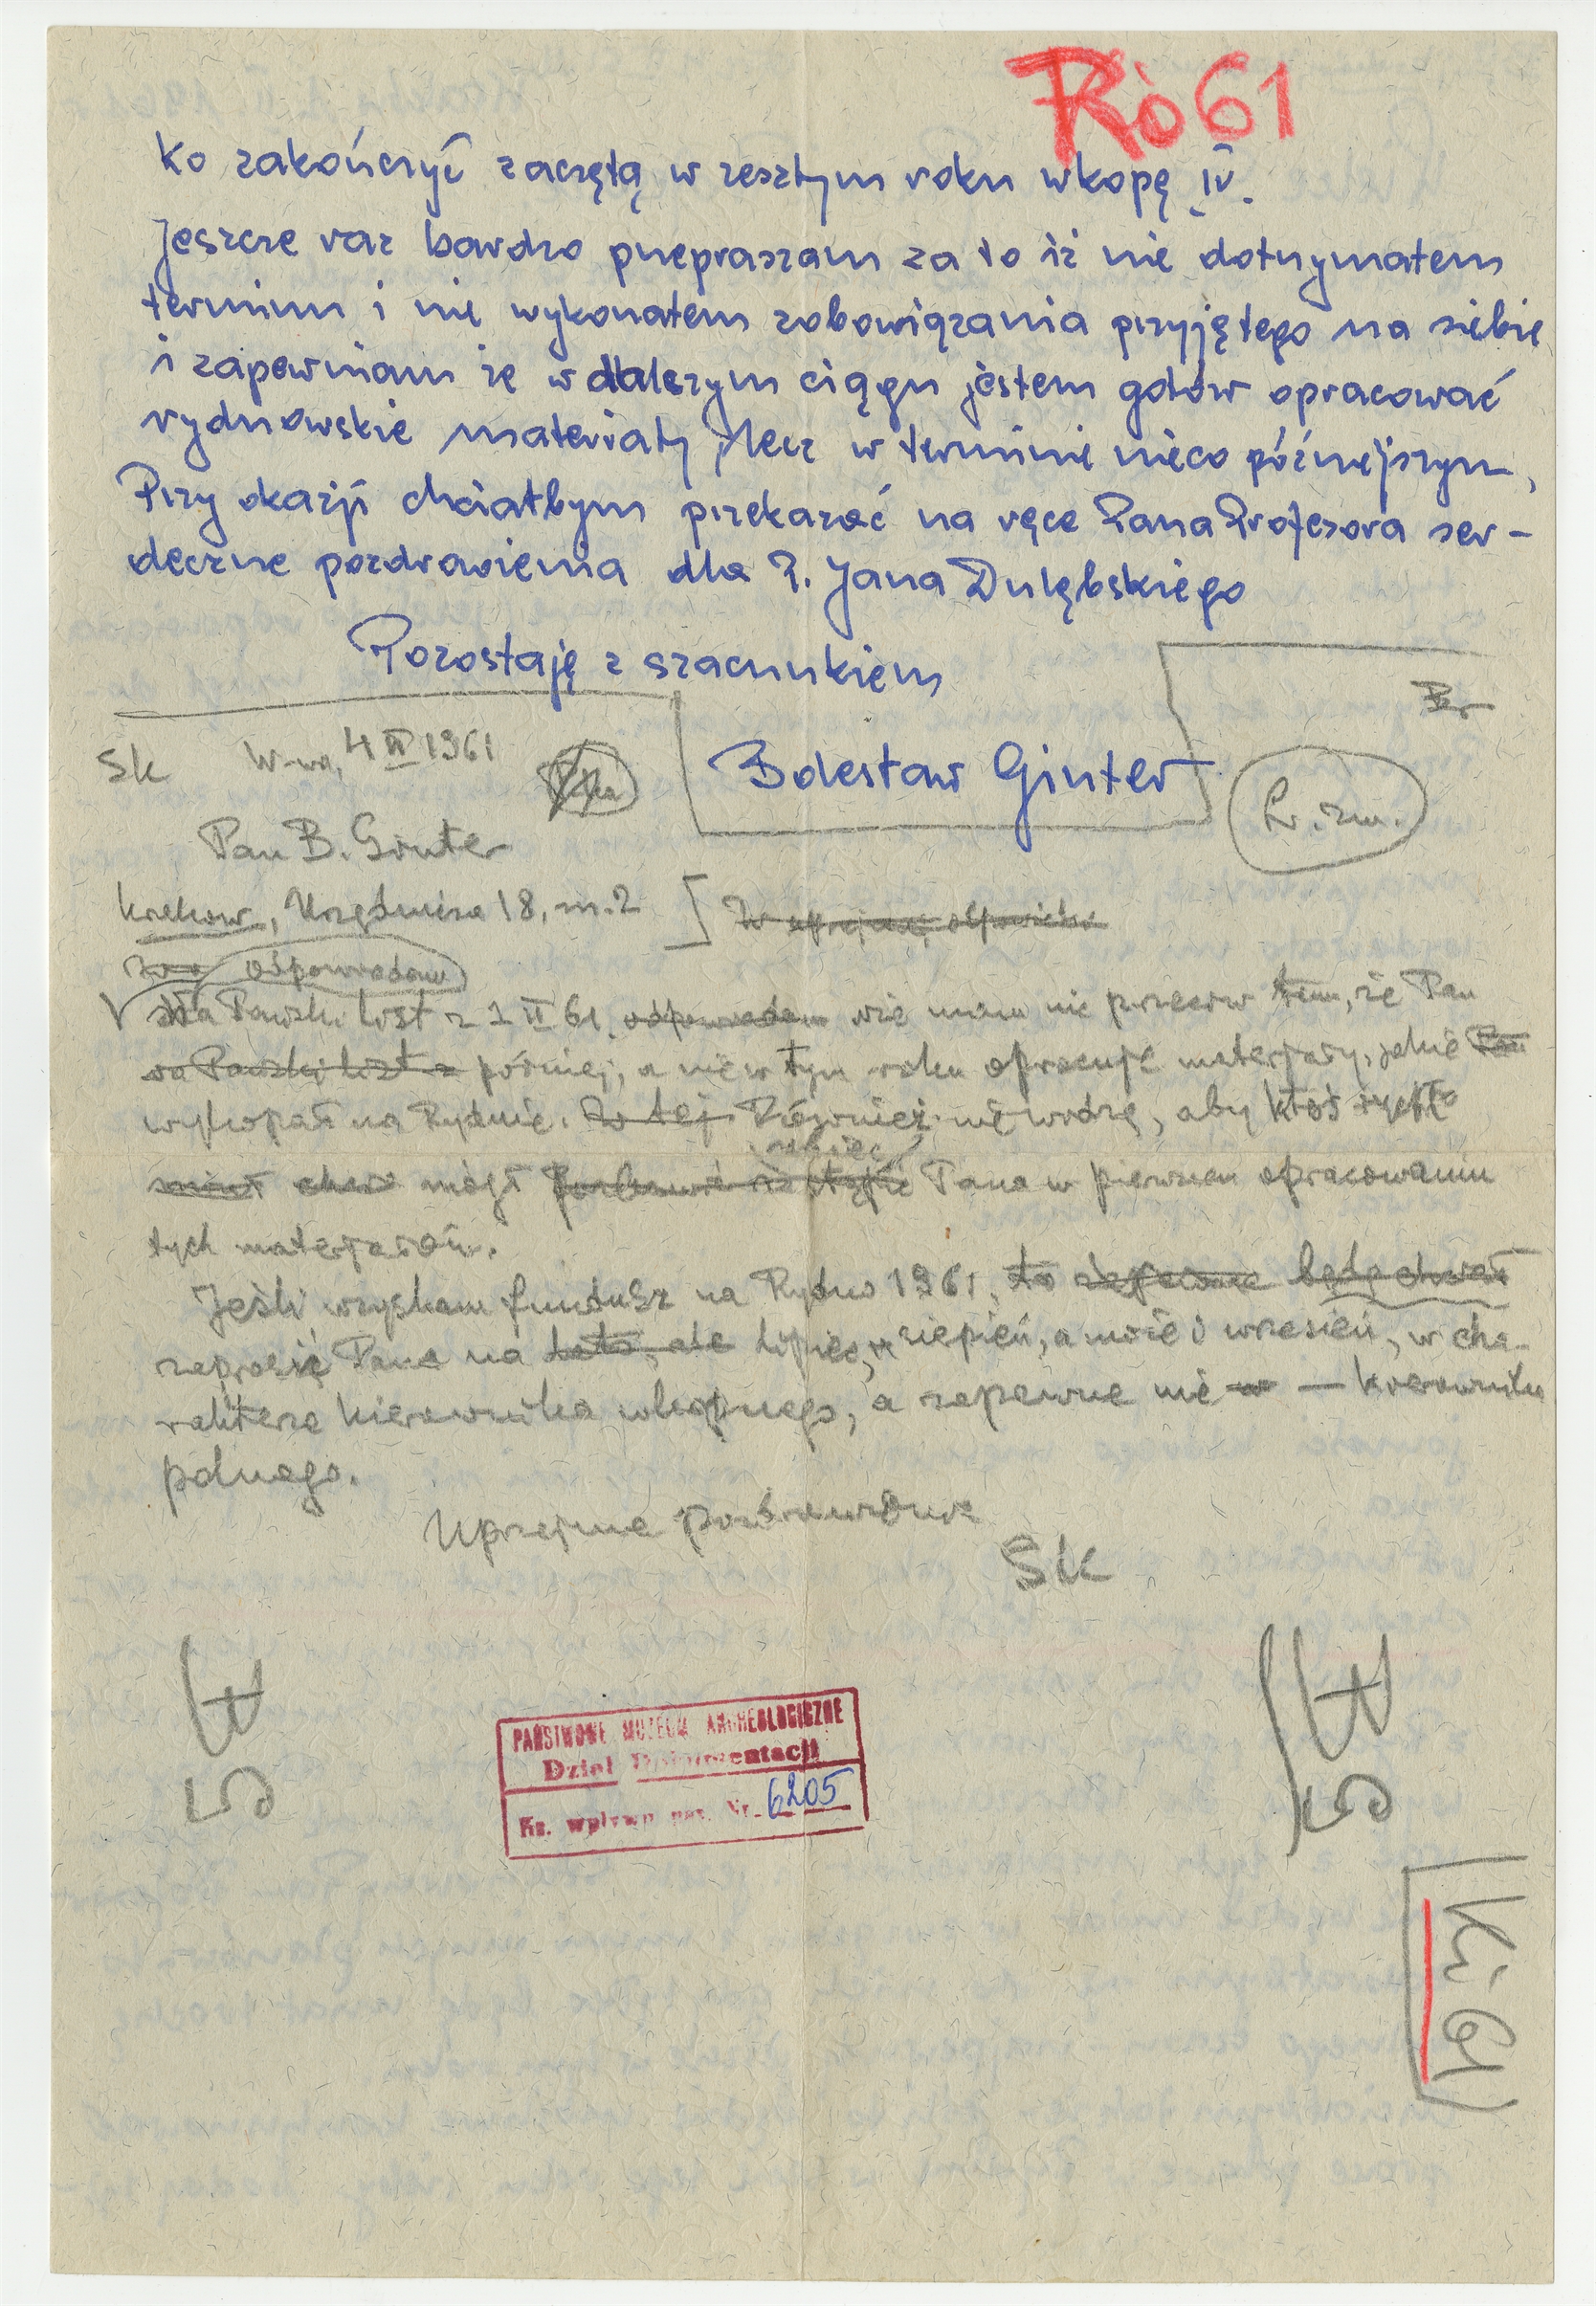 Rò 61
ko zakończyć zaczętą w zeszłym roku wkopę IV.
Jeszcze raz bardzo przepraszam za to iż nie dotrzymałem
terminu i nie wykonałem zobowiązania przyjętego na siebie
i zapewniam że w dalszym ciągu jestem gotów opracować
rydnowskie materiały, lecz w terminie nieco późniejszym,
Przy okazji chciałbym przekazać na ręce Pana Profesora ser-
deczne pozdrowienia dla P. Jana Dulębskiego
Pozostaję z szacunkiem
Bolesław Ginter
SK W-wa, 4 III 1961
Pan B. Ginter
Kraków, Urzędnicza 18, m. 2
W uprzejmej odpowiedzi
odpowiadam
na Pański list z 1 II 61, odpowiadam nie mam nic przeciw temu, że Pan
na Pański list z później, a nie w tym roku opracuje materjały, jakie Pan
wykopał na Rydnie. Również nie widzę, aby ktoś
mógł Pana w pierwszem opracowaniu
tych materjałów.
Jeśli uzyskam fundusz na Rydno 1961, to będę chciał
zaprosić Pana na lato, ale lipiec, sierpień, a może i wrzesień, w cha-
rakterze kierownika wkopnego, a zapewne nie w — kierownika
polnego.
Uprzejme pozdrowienia
SK
PAŃSTWOWE MUZEUM ARCHEOLOGICZNE
Dział Dokumentacji
Ks. wpływu poz. Nr. 6205